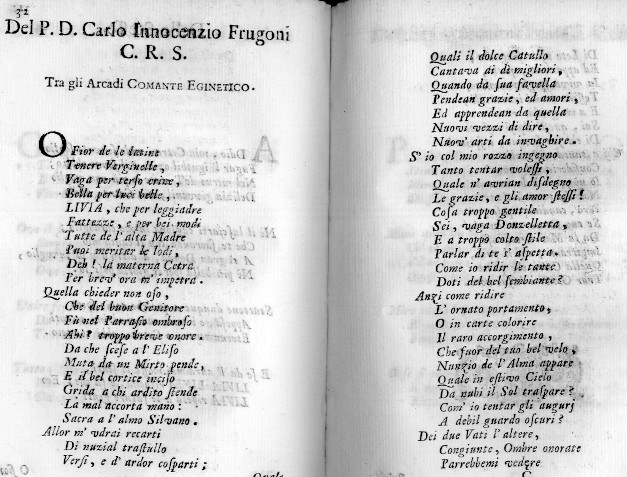 32
Del P. D. Carlo Innocenzio Frugoni
C. R. S.
Tra gli Arcadi COMANTE EGINETICO.
O Fior de le latine
Tenere Verginelle,
Vaga per terso crine,
Bella per luci belle,
LIVIA, che per leggiadre
Fattezze, e per bei modi
Tutte de l' alta Madre
Puoi meritar le lodi,
Deh! la materna Cetra
Per brev' ora m' impetra.
Quella chieder non oso,
Che del buon Genitore
Fù nel Parrasio ombroso
Ahi! troppo breve onore.
Da che scese a l' Eliso
Muta da un Mirto pende,
E il bel cortice inciso
Grida a chi ardito stende
La mal accorta mano:
Sacra a l' almo Silvano.
Allor m' udrai recarti
Di nuzial trastullo
Versi, e d' ardor cosparti;
Quale
Quali il dolce Catullo
Cantava ai dì migliori,
Quando da sua favella
Pendean grazie, ed amori,
Ed apprendean da quella
Nuovi vezzi di dire,
Nuov' arti da invaghire.
S' io col mio rozzo ingegno
Tanto tentar volessi,
Quale n' avrian disdegno
Le grazie, e gli amor stessi!
Cosa troppo gentile
Sei, vaga Donzelletta,
E a troppo colto stile
Parlar di te s' aspetta.
Come io ridir le tante
Doti del bel sembiante?
Anzi come ridire
L' ornato portamento,
O in carte colorire
Il raro accorgimento,
Che fuor del tuo bel velo,
Nunzio de l' Alma appare
Quale in estivo Cielo
Da nubi il Sol traspare?
Com' io tentar gli augurj
A debil guardo oscuri?
Dei due Vati l' altere,
Congiunte, Ombre onorate
Parrebbemi vedere
C